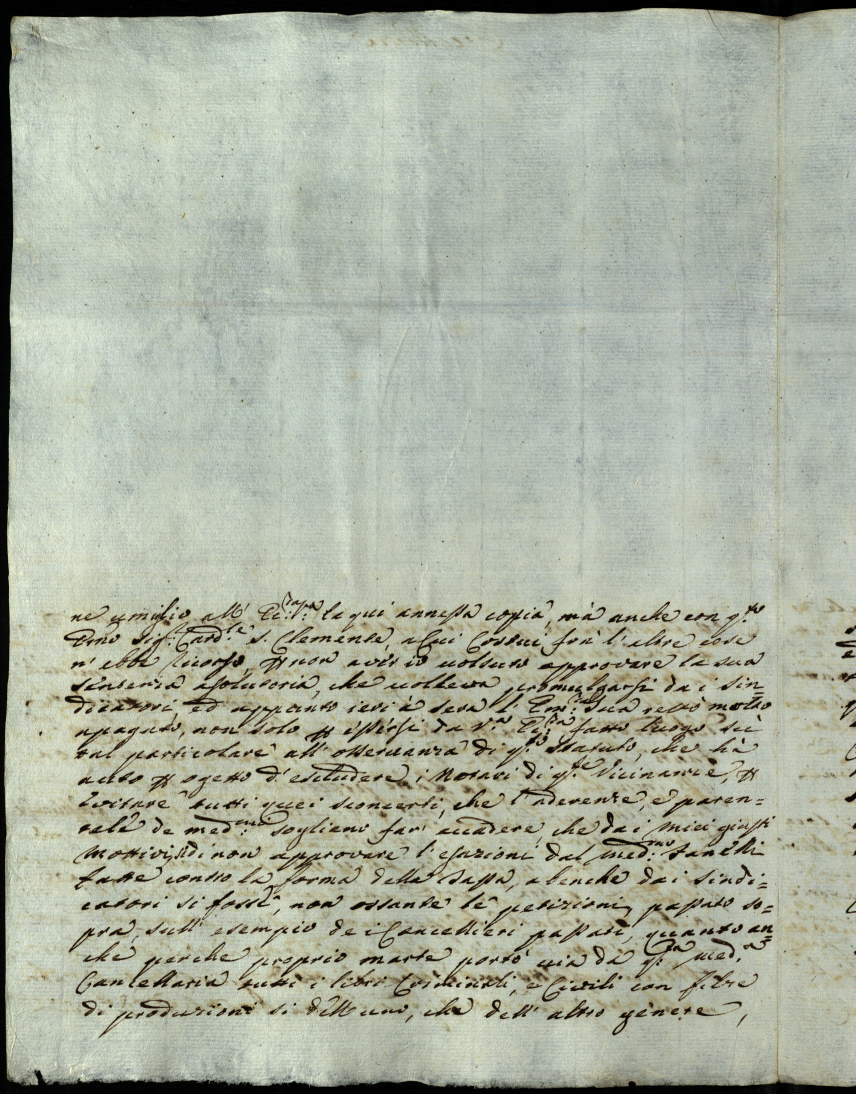 ne umilio all' Ecc:za V:ra la qui annessa copia, mà anche con q:sto
Emo Sig: Card:le S. Clemente, a Cui Costui frà l'altre cose
n' ebbe ricorso, p non aver io voluto approvare la sua
sentenza asolutoria, che voleva promulgarsi da i Sin=
dicatori ed appunto ieri à sera l' Em:za Sua restò molto
apagato, non solo p essersi da V:ra Ecc:za fatto luogo sù
tal particolare all' osservanza di q:sto Statuto, che hà
auto p ogetto d' escludere i Notari di q:ste Vicinanze, p
evitare tutti quei sconcerti, che l' aderenze, e paren=
tele de med:mi sogliano far' accadere, che da i miei giusti
Mottivi di non approvare l' esazioni dal med:mo Fanelli
fatte contro la forma della Tassa, abenche da i Sindi=
catori si fosse, non ostante le petizioni, passato so=
pra, sull' esempio de i Cancellieri passati, quanto an=
che perche proprio marte portò via da q:sta med:a
Cancellaria tutti i libri Criminali, e Civili con filze
di produzioni si dell' uno, che dell' altro genere,